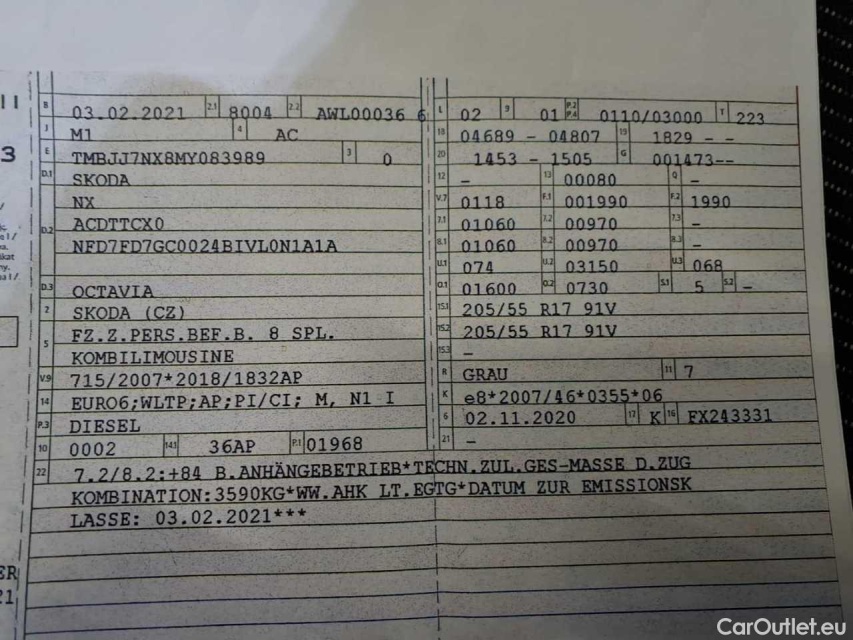 B 03.02.2021 2.1 8004 2.2 AWL00036 6 L 02 9 01 P.2 P.4 0110/03000 T 223
J M1 4 AC 18 04689 - 04807 19 1829 - -
E TMBJJ7NX8MY083989 3 0 20 1453 - 1505 G 001473--
D.1 SKODA 12 - 13 00080 Q -
NX V.7 0118 F.1 001990 F.2 1990
D.2 ACDTTCX0 7.1 01060 7.2 00970 7.3 -
NFD7FD7GC0024BIVL0N1A1A 8.1 01060 8.2 00970 8.3 -
U.1 074 U.2 03150 U.3 068
D.3 OCTAVIA O.1 01600 O.2 0730 S.1 5 S.2 -
2 SKODA (CZ) 15.1 205/55 R17 91V
5 FZ.Z.PERS.BEF.B. 8 SPL. 15.2 205/55 R17 91V
KOMBILIMOUSINE 15.3 -
V.9 715/2007*2018/1832AP R GRAU 11 7
14 EURO6;WLTP;AP;PI/CI; M, N1 I K e8*2007/46*0355*06
P.3 DIESEL 6 02.11.2020 17 K 16 FX243331
10 0002 14.1 36AP P.1 01968 21 -
22 7.2/8.2:+84 B.ANHÄNGEBETRIEB*TECHN.ZUL.GES-MASSE D.ZUG
KOMBINATION:3590KG*WW.AHK LT.EGTG*DATUM ZUR EMISSIONSK
LASSE: 03.02.2021***
CarOutlet.eu